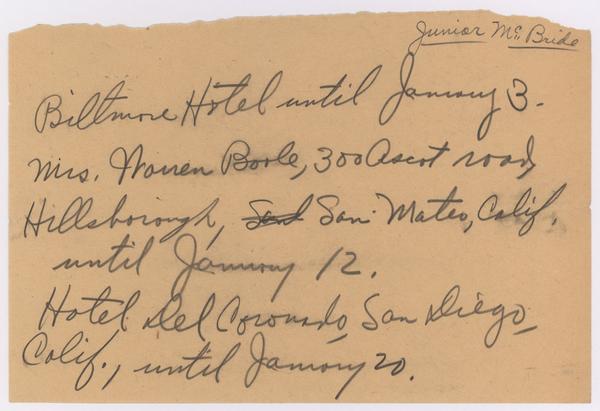 Junior Mc Bride
Biltmore Hotel until January 3.
Mrs. Warren Boole, 300 Ascot road,
Hillsborough, San Mateo, Calif.
until January 12.
Hotel Del Coronado, San Diego,
Calif., until January 20.